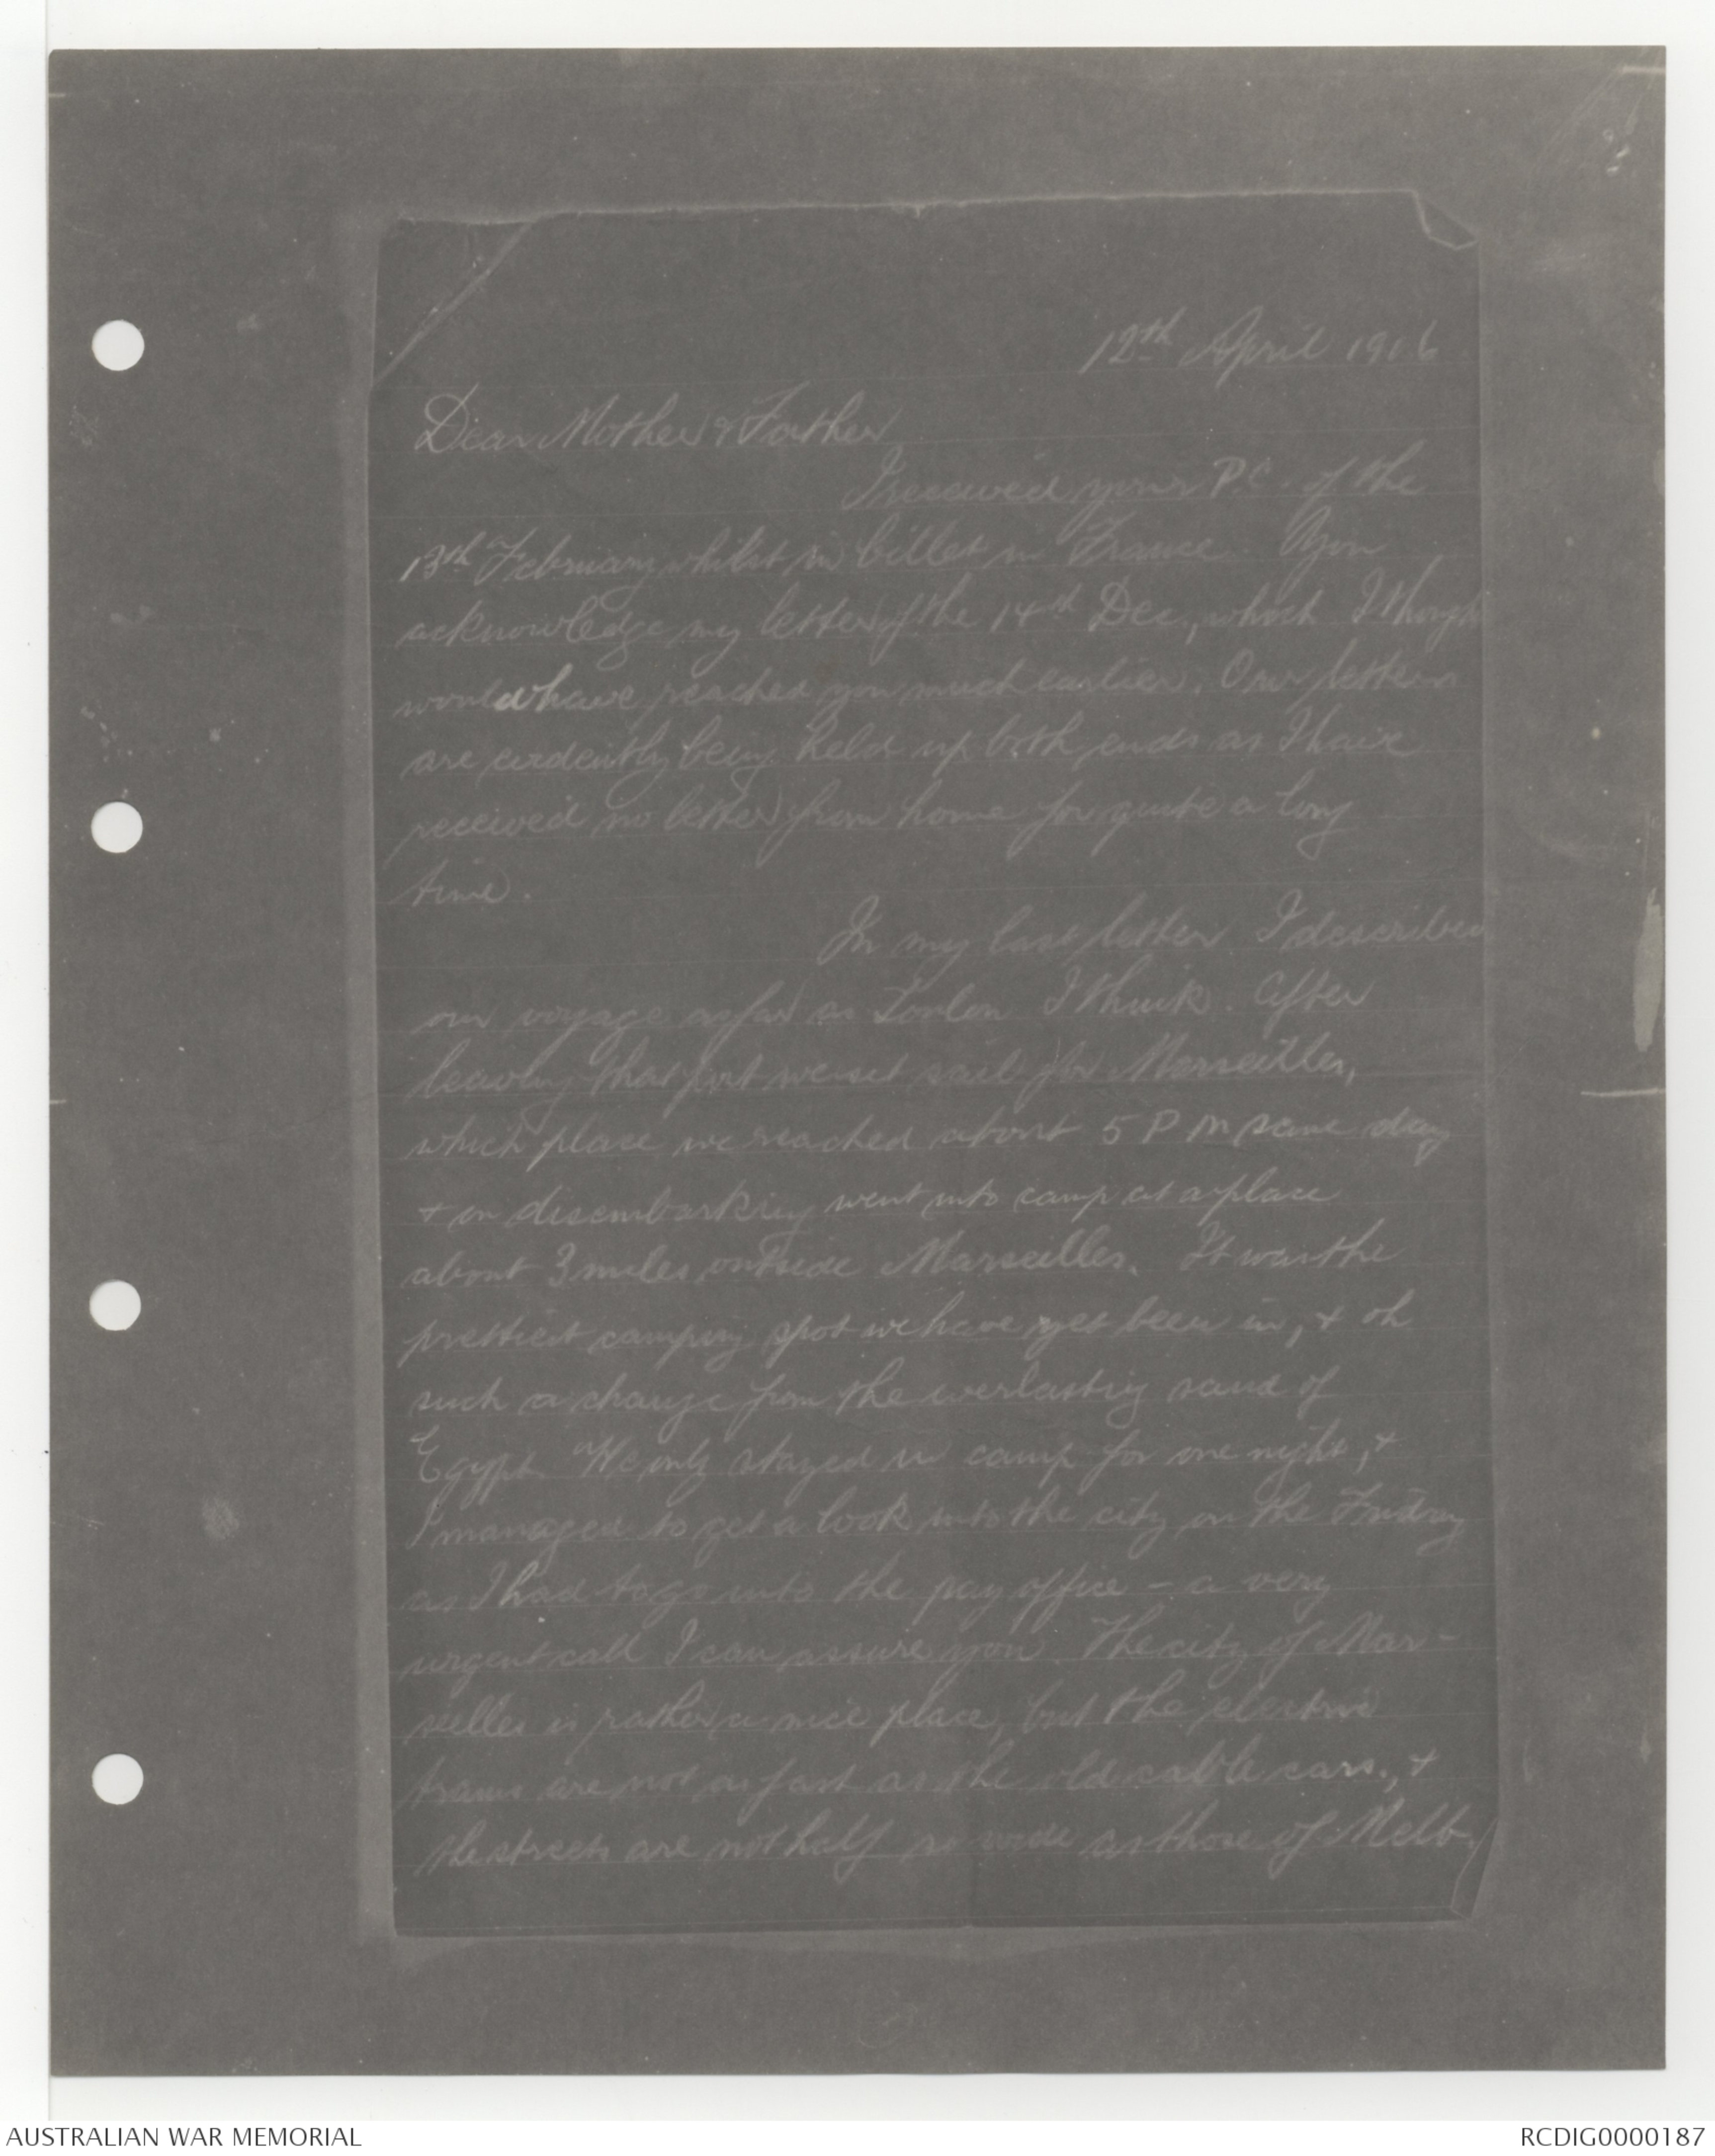 12th April 1916
Dear Mother & Father
I received your P.C. of the
13th February whilst in billet in France. You
acknowledge my letter of the 14th Dec., which I though
would have reached you much earlier. Our letters
are evidently being held up both ends as I have
received no letter from home for quite a long
time.
In my last letter I described
our voyage as far as Toulon I think. After
leaving that port we set sail for Marseilles,
which place we reached about 5 P M same day
& on disembarking went into camp at a place
about 3 miles outside Marseilles. It was the
prettiest camping spot we have yet been in, & oh
such a change from the everlasting sand of
Egypt. We only stayed in camp for one night, &
I managed to get a look into the city on the Friday
as I had to go into the pay office - a very
urgent call I can assure you. The city of Mar-
seilles is rather a nice place, but the electric
trams are not as fast as the old cable cars., &
the streets are not half so wide as those of Melb.
AUSTRALIAN WAR MEMORIAL
RCDIG0000187